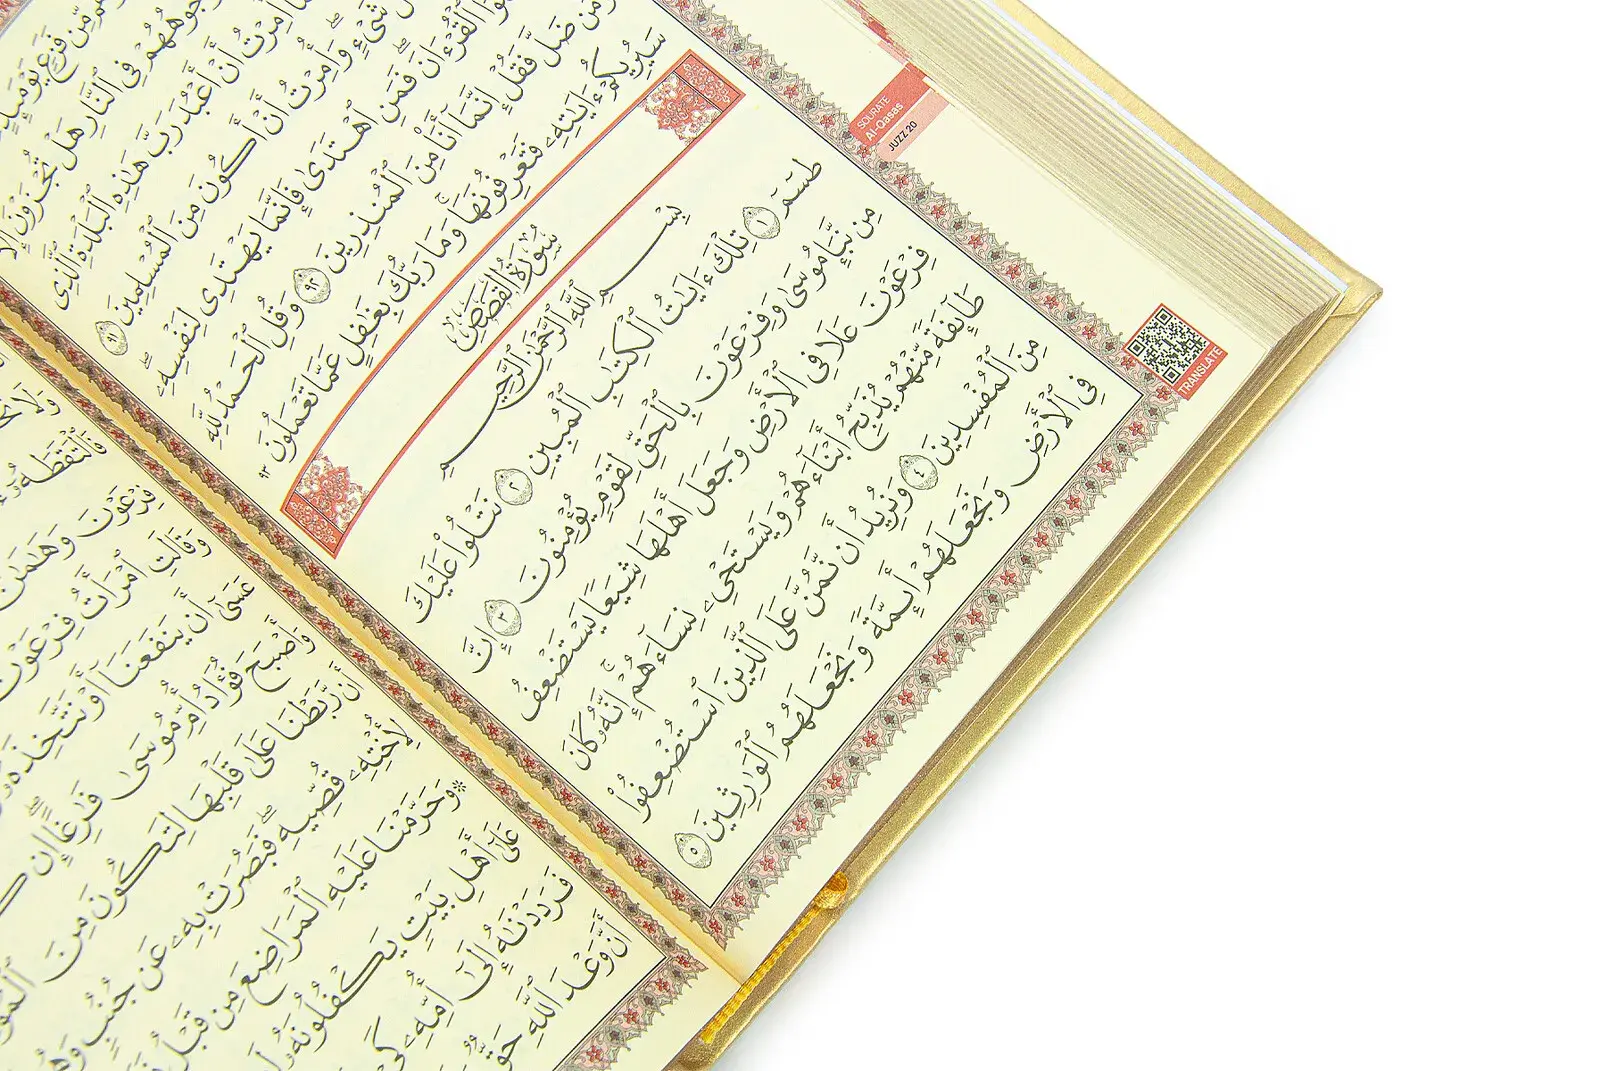 مِّن فَزَعٍ يَوْمَئِذٍ
وُجُوهُهُمْ فِى ٱلنَّارِ هَلْ تُجْزَوْنَ إِلَّا
أُمِرْتُ أَنْ أَعْبُدَ رَبَّ هَـٰذِهِ ٱلْبَلْدَةِ ٱلَّذِى
شَىْءٍ وَأُمِرْتُ أَنْ أَكُونَ مِنَ ٱلْمُسْلِمِينَ ٩١
ٱلْقُرْءَانَ فَمَنِ ٱهْتَدَىٰ فَإِنَّمَا يَهْتَدِى لِنَفْسِهِۦ
وَمَن ضَلَّ فَقُلْ إِنَّمَآ أَنَا۠ مِنَ ٱلْمُنذِرِينَ ٩٢ وَقُلِ ٱلْحَمْدُ لِلَّهِ
سَيُرِيكُمْ ءَايَـٰتِهِۦ فَتَعْرِفُونَهَا وَمَا رَبُّكَ بِغَـٰفِلٍ عَمَّا تَعْمَلُونَ ٩٣
سُورَةُ القَصَصِ
بِسْمِ ٱللَّهِ ٱلرَّحْمَـٰنِ ٱلرَّحِيمِ
طسٓمٓ ١ تِلْكَ ءَايَـٰتُ ٱلْكِتَـٰبِ ٱلْمُبِينِ ٢ نَتْلُوا۟ عَلَيْكَ
مِن نَّبَإِ مُوسَىٰ وَفِرْعَوْنَ بِٱلْحَقِّ لِقَوْمٍ يُؤْمِنُونَ ٣ إِنَّ
فِرْعَوْنَ عَلَا فِى ٱلْأَرْضِ وَجَعَلَ أَهْلَهَا شِيَعًا يَسْتَضْعِفُ
طَآئِفَةً مِّنْهُمْ يُذَبِّحُ أَبْنَآءَهُمْ وَيَسْتَحْىِۦ نِسَآءَهُمْ ۚ إِنَّهُۥ كَانَ
مِنَ ٱلْمُفْسِدِينَ ٤ وَنُرِيدُ أَن نَّمُنَّ عَلَى ٱلَّذِينَ ٱسْتُضْعِفُوا۟
فِى ٱلْأَرْضِ وَنَجْعَلَهُمْ أَئِمَّةً وَنَجْعَلَهُمُ ٱلْوَٰرِثِينَ ٥
SOURATE
Al-Qasas
JUZZ 20
TRANSLATE
وَلَا
فَٱلْتَقَطَهُۥٓ
فِرْعَوْنَ وَهَـٰمَـٰنَ
وَقَالَتِ ٱمْرَأَتُ فِرْعَوْنَ
عَسَىٰٓ أَن يَنفَعَنَآ أَوْ نَتَّخِذَهُۥ
وَأَصْبَحَ فُؤَادُ أُمِّ مُوسَىٰ فَـٰرِغًا ۖ إِن
أَن رَّبَطْنَا عَلَىٰ قَلْبِهَا لِتَكُونَ مِنَ
لِأُخْتِهِۦ قُصِّيهِ ۖ فَبَصُرَتْ بِهِۦ عَن جُنُبٍ
۞ وَحَرَّمْنَا عَلَيْهِ ٱلْمَرَاضِعَ مِن قَبْلُ
عَلَىٰٓ أَهْلِ بَيْتٍ يَكْفُلُونَهُۥ
فَرَدَدْنَـٰهُ إِلَىٰٓ أُمِّهِۦ كَىْ
أَنَّ وَعْدَ ٱللَّهِ حَقٌّ